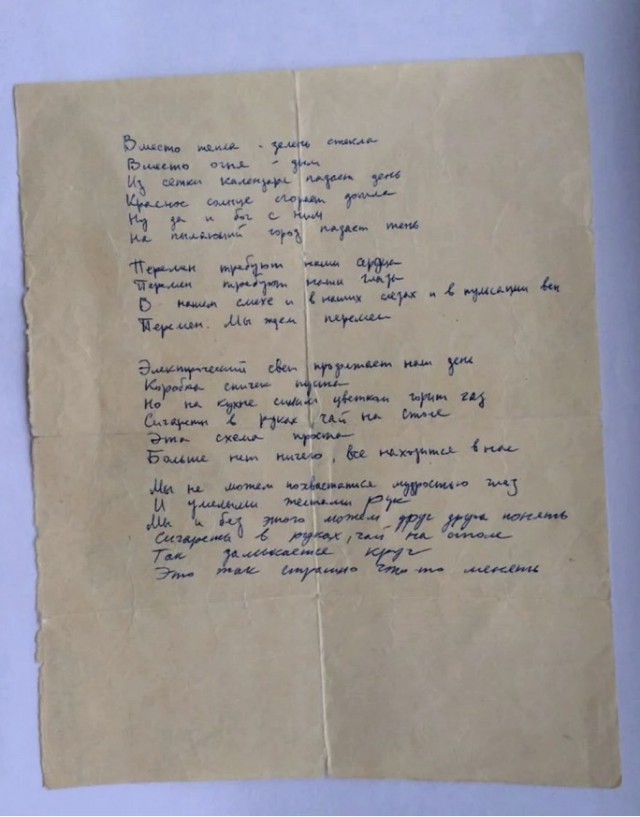 Вместо тепла - зелень стекла
Вместо огня - дым
Из сетки календаря падает день
Красное солнце сгорает дотла
Ну да и бог с ним
На пылающий город падает тень
Перемен требуют наши сердца
Перемен требуют наши глаза
В нашем смехе и в наших слезах и в пульсации вен
Перемен. Мы ждем перемен
Электрический свет продолжает наш день
Коробка спичек пуста
Но на кухне синим цветком горит газ
Сигареты в руках чай на столе
Эта схема проста
Больше нет ничего, все находится в нас
Мы не можем похвастаться мудростью глаз
И умелыми жестами рук
Мы и без этого можем друг друга понять
Сигареты в руках, чай на столе
Так замыкается круг
Это так страшно что-то менять